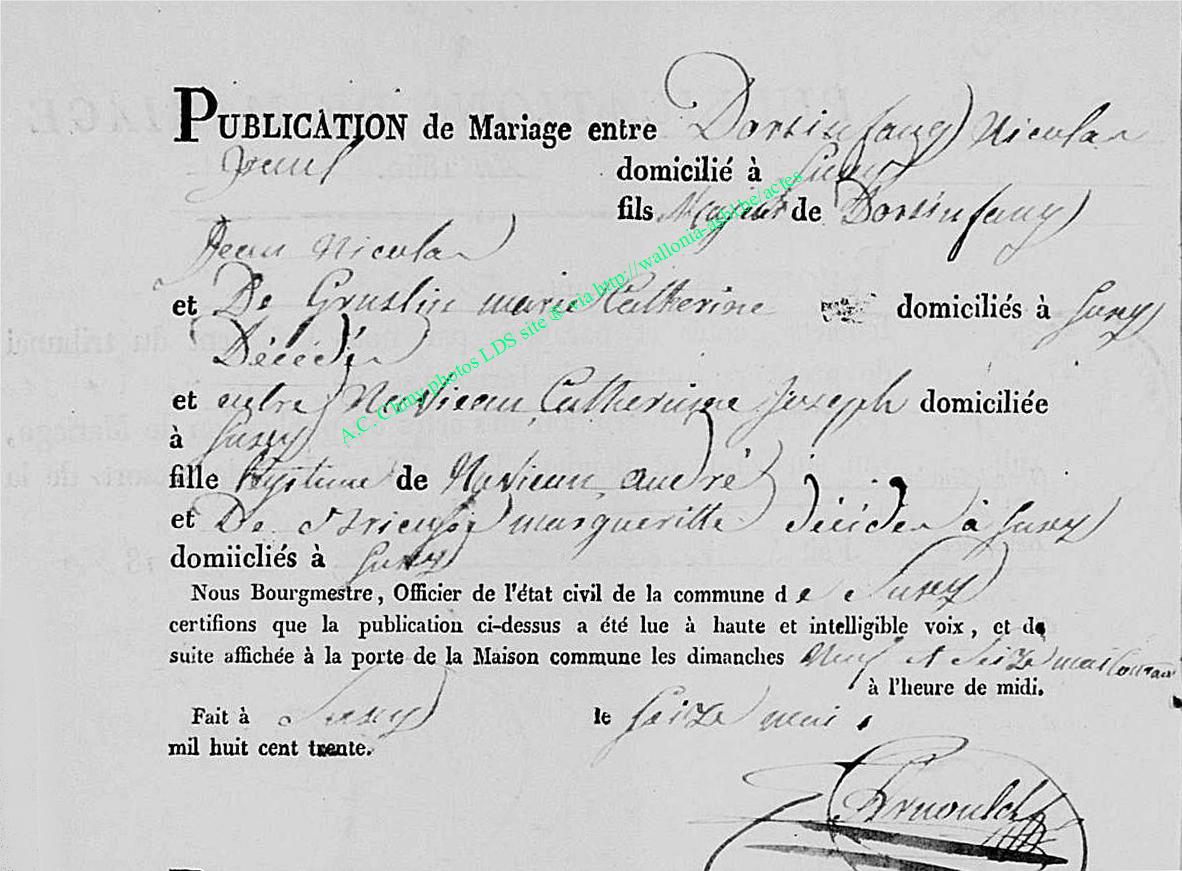 PUBLICATION de Mariage entre Dorsinfang Nicolas
Jean domicilié à Suxy
fils Majeur de Dorsinfang
Jean Nicolas
et De Gruslin marie Catherine domiciliés à Suxy
Décédée
et entre Navieau Catherine Joseph domiciliée
à Suxy
fille légitime de Navieau andré
et De margueritte à Suxy
domiicliés à Suxy
Nous Bourgmestre, Officier de l'état civil de la commune de Suxy
certifions que la publication ci-dessus a été lue à haute et intelligible voix, et de
suite affichée à la porte de la Maison commune les dimanches Neuf et Seize mai Courant
à l'heure de midi.
Fait à Suxy le Seize mai
mil huit cent trente.
A.C. Chiny photos LDS site & via http://wallonia-asbl.be/actes